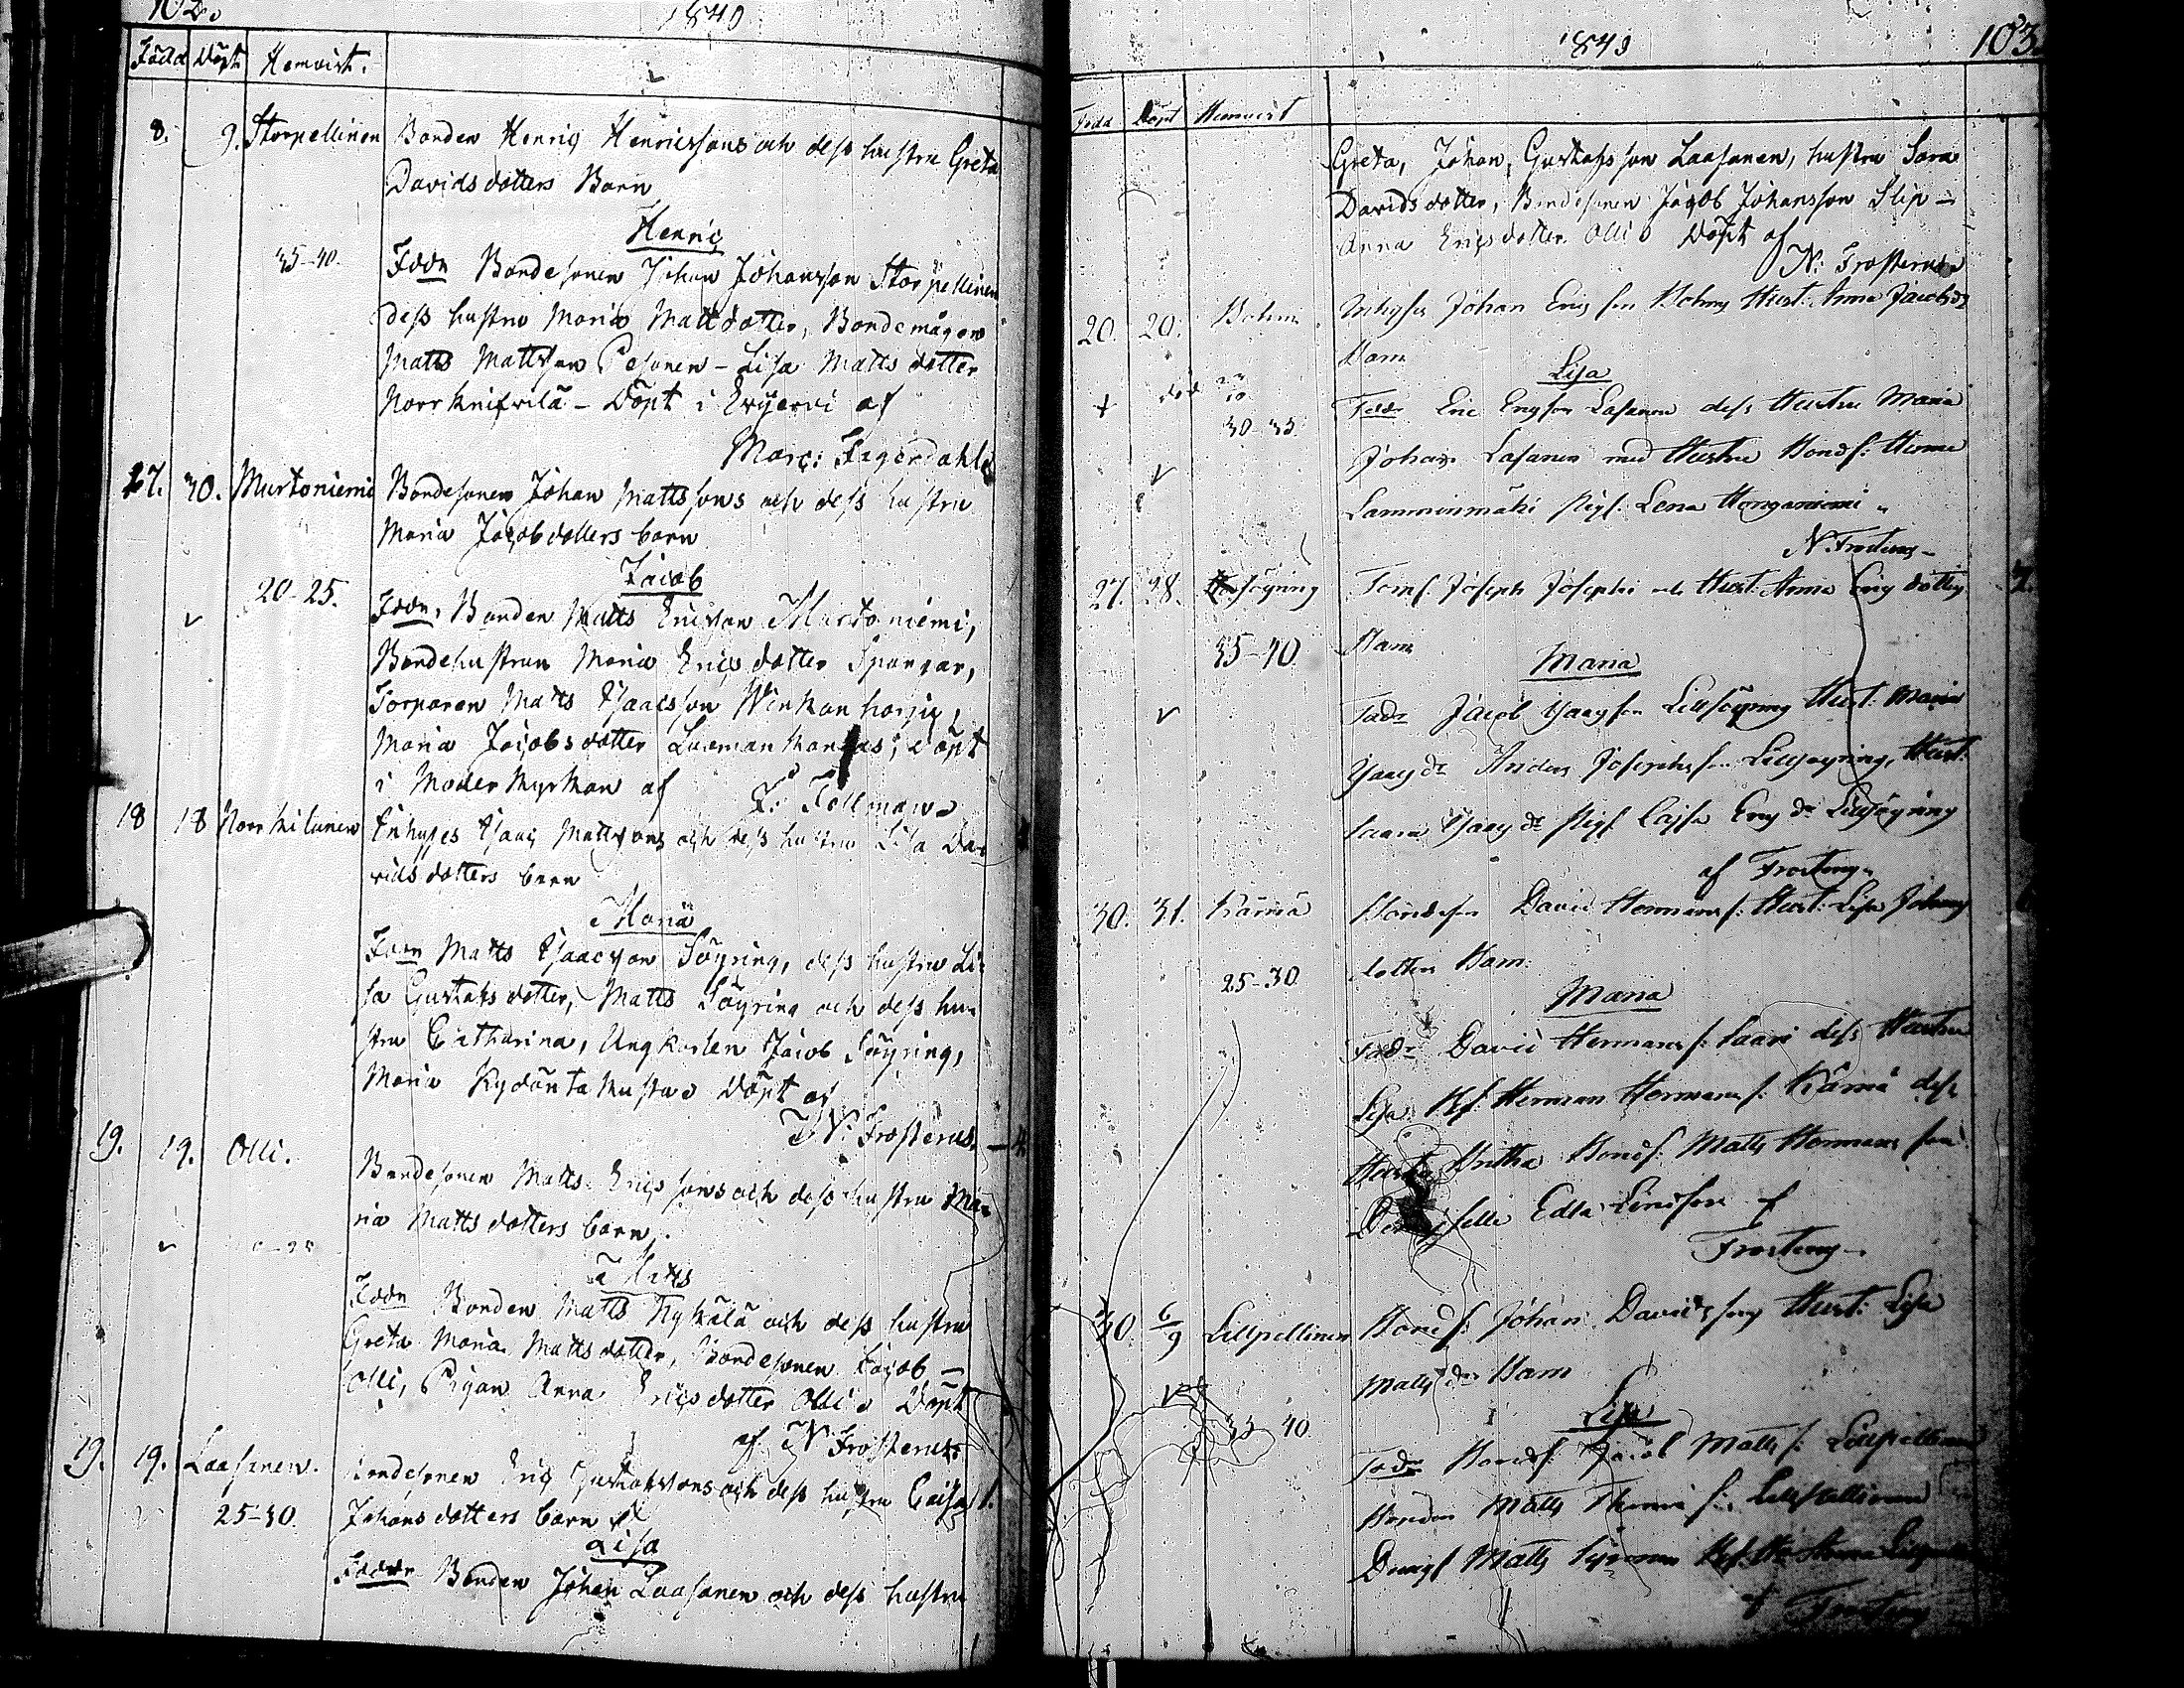 102.
1849
Född Döpt Hemvist.
8. 9. Storpellinen Bonden Henric Henricssons och dess hustru Greta
Davidsdotters Barn
Henric
35-40. Faddr Bondesonen Johan Johansson Storpellinen
dess hustru Maria Mattsdotter, Bondemågen
Matts Mattsson Pesonen - Lisa Mattsdotter
Norrknifvilä - Döpt i af
Marc: Fagerdahl
27. 30. Murtoniemi Bondesonen Johan Mattssons och dess hustru
Maria Jacobsdotters barn
Jacob
20-25. Faddr, Bonden Matts Ericsson Murtoniemi,
Bondehustrun Maria Ericsdotter Spangar,
Torparen Matts Isaacsson Winkanharju,
Maria Jacobsdotter döpt
i Moderkyrkan af F: Tollman
18 18 Norrkitunen Inhyses Isaac Mattssons och dess hustru Lisa Da-
vidsdotters barn
Maria
Faddr Matts Isaacsson Söyring, dess hustru Li-
sa Gustafsdotter, Matts Söyring och dess hu-
stru Catharina, Ungkarlen Jacob Söyring,
Maria Kydöntakusta Döpt af
N: Frosterus.
19. 19. Olli. Bondesonen Matts Ericssons och dess hustru Ma-
ria Mattsdotters barn.
Matts
Faddr Bonden Matts Kykälä och dess hustru
Greta Maria Mattsdotter, Bondesonen Jacob
Olli, Pigan Anna Ericsdotter Olli Döpt
af N Frosterus.
19. 19. Laasanen. Bondesonen Eric Gustafssons och dess hustru Caisa
25-30. Johansdotters barn
Lisa
Faddr Bonden Johan Laasanen och dess hustru
1849
103.
Född Döpt Hemvist
Greta, Johan Gustafsson Laasanen, hustru Sara
Davidsdotter, Bondesonen Jacob Johansson Slip-
Anna Ericsdotter Olli Döpt af
N: Frosterus
20. 20. Bohm Inhyses Johan Ericsson Bohms Hust: Anna Jacobsdr
Barn
Lisa
död 30-35. Faddr Eric Ericsson Lasanen dess Hustru Maria
Johan Lasanen med Hustru Bonds:
Lamminmäki Pig. Lena Honganiemi
N. Frosterus
27. 28. Söyring Joseph Josephs och Hust: Anna Ericsdotters
35-40. Barn
Maria
Faddr Jacob Isacsson Lillsöyring Hust: Maria
Isacsdr Anders Josephsson Lillsöyring, Hust:
Isacsdr Pig. Cajsa Ericsdr Lillsöyring
af Frosterus
30. 31. Kärnä Bondeson David Hermanss: Hust: Lisa Johans
dotters Barn:
25-30. Maria
Faddr David Hermanss: Saari dess Hustru
Lisa Herman Hermanss: Kärnä dess
Hustru Bonds. Matts Hermansson
Edla af
Frosterus
30. 6/9 Lillpellinen Bonds: Johan Davidssons Hust: Lisa
Matts dr Barn
35-40. Lisa
Faddr Bonds. Jacob Matts s: Lillpellinen
Bonden Matts Lillpellinen
Dreng Matts
af Frosterus